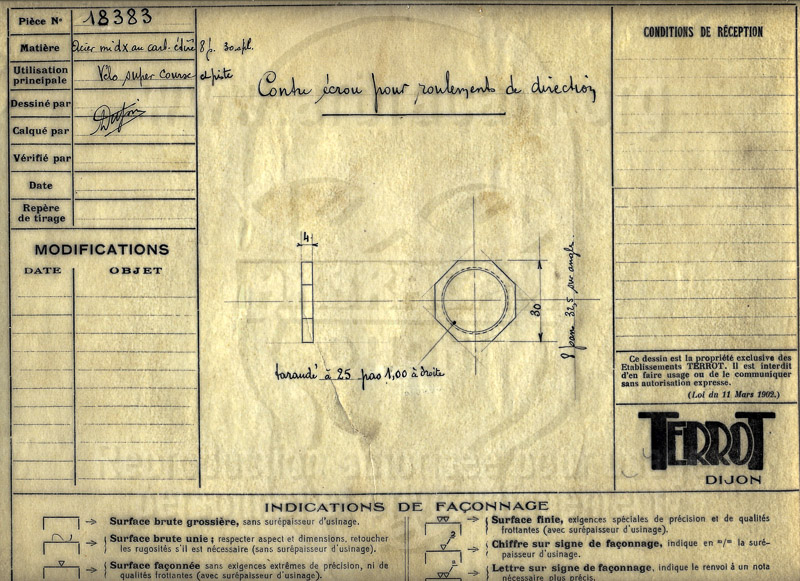 Pièce No 18383
Matière Acier mi dx au carb. étiré 8 p. 30 s.pl.
Utilisation principale Vélo super course et piste
Dessiné par
Calqué par
Vérifié par
Date
Repère de tirage
MODIFICATIONS
DATE OBJET
Contre écrou pour roulements de direction
4
30
8 pans 32,5 sur angle
taraudé à 25 pas 1,00 à droite
CONDITIONS DE RÉCEPTION
Ce dessin est la propriété exclusive des
Etablissements TERROT. Il est interdit
d'en faire usage ou de le communiquer
sans autorisation expresse.
(Loi du 11 Mars 1902.)
TERROT
DIJON
INDICATIONS DE FAÇONNAGE
Surface brute grossière, sans surépaisseur d'usinage.
Surface brute unie; respecter aspect et dimensions, retoucher
les rugosités s'il est nécessaire (sans surépaisseur d'usinage).
Surface façonnée sans exigences extrêmes de précision, ni de
qualités frottantes (avec surépaisseur d'usinage).
Surface finie, exigences spéciales de précision et de qualités
frottantes (avec surépaisseur d'usinage).
3
Chiffre sur signe de façonnage, indique en m/m la suré-
paisseur d'usinage.
a
Lettre sur signe de façonnage, indique le renvoi à un nota
nécessaire plus précis.